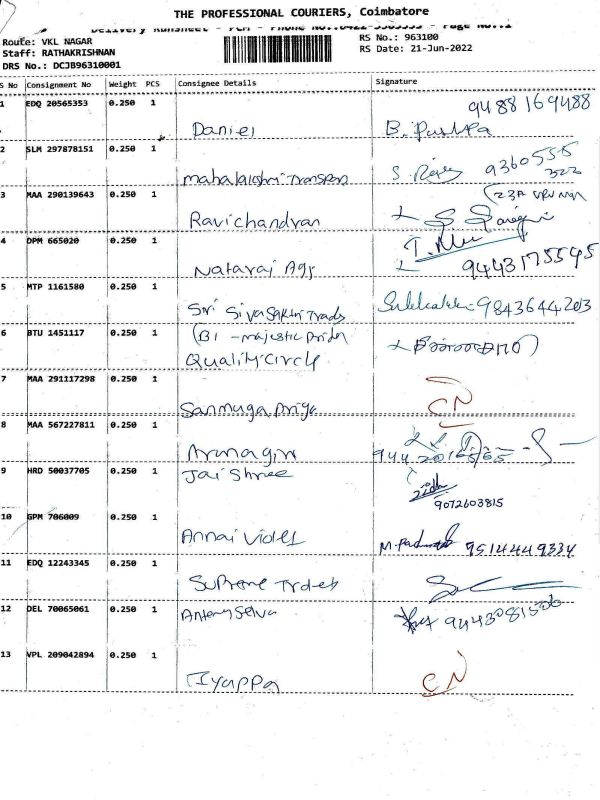 THE PROFESSIONAL COURIERS, Coimbatore
Route: VKL NAGAR
Staff: RATHAKRISHNAN
DRS No.: DCJB96310001
RS No.: 963100
RS Date: 21-Jun-2022
S No Consignment No Weight PCS Consignee Details Signature
1 EDQ 20565353 0.250 1 Daniel B. Pushpa 9488169488
2 SLM 297878151 0.250 1 mahalakshmi Transport 9360555 322
3 MAA 290139643 0.250 1 Ravichandran
4 DPM 665020 0.250 1 Nataraj Agy 9443175545
5 MTP 1161580 0.250 1 Sri Sivasakthi Trads 9843644203
6 BTU 1451117 0.250 1 (B1 - majestic
Quality Circle
7 MAA 291117298 0.250 1 Sanmuga Priya CN
8 MAA 567227811 0.250 1 Arunagiri
9 HRD 50037705 0.250 1 Jai Shree 9072603815
10 GPM 706009 0.250 1 Annai 9514449334
11 EDQ 12243345 0.250 1 Supreme
12 DEL 70065061 0.250 1 Antony Selva
13 VPL 209042894 0.250 1 Iyappa CN